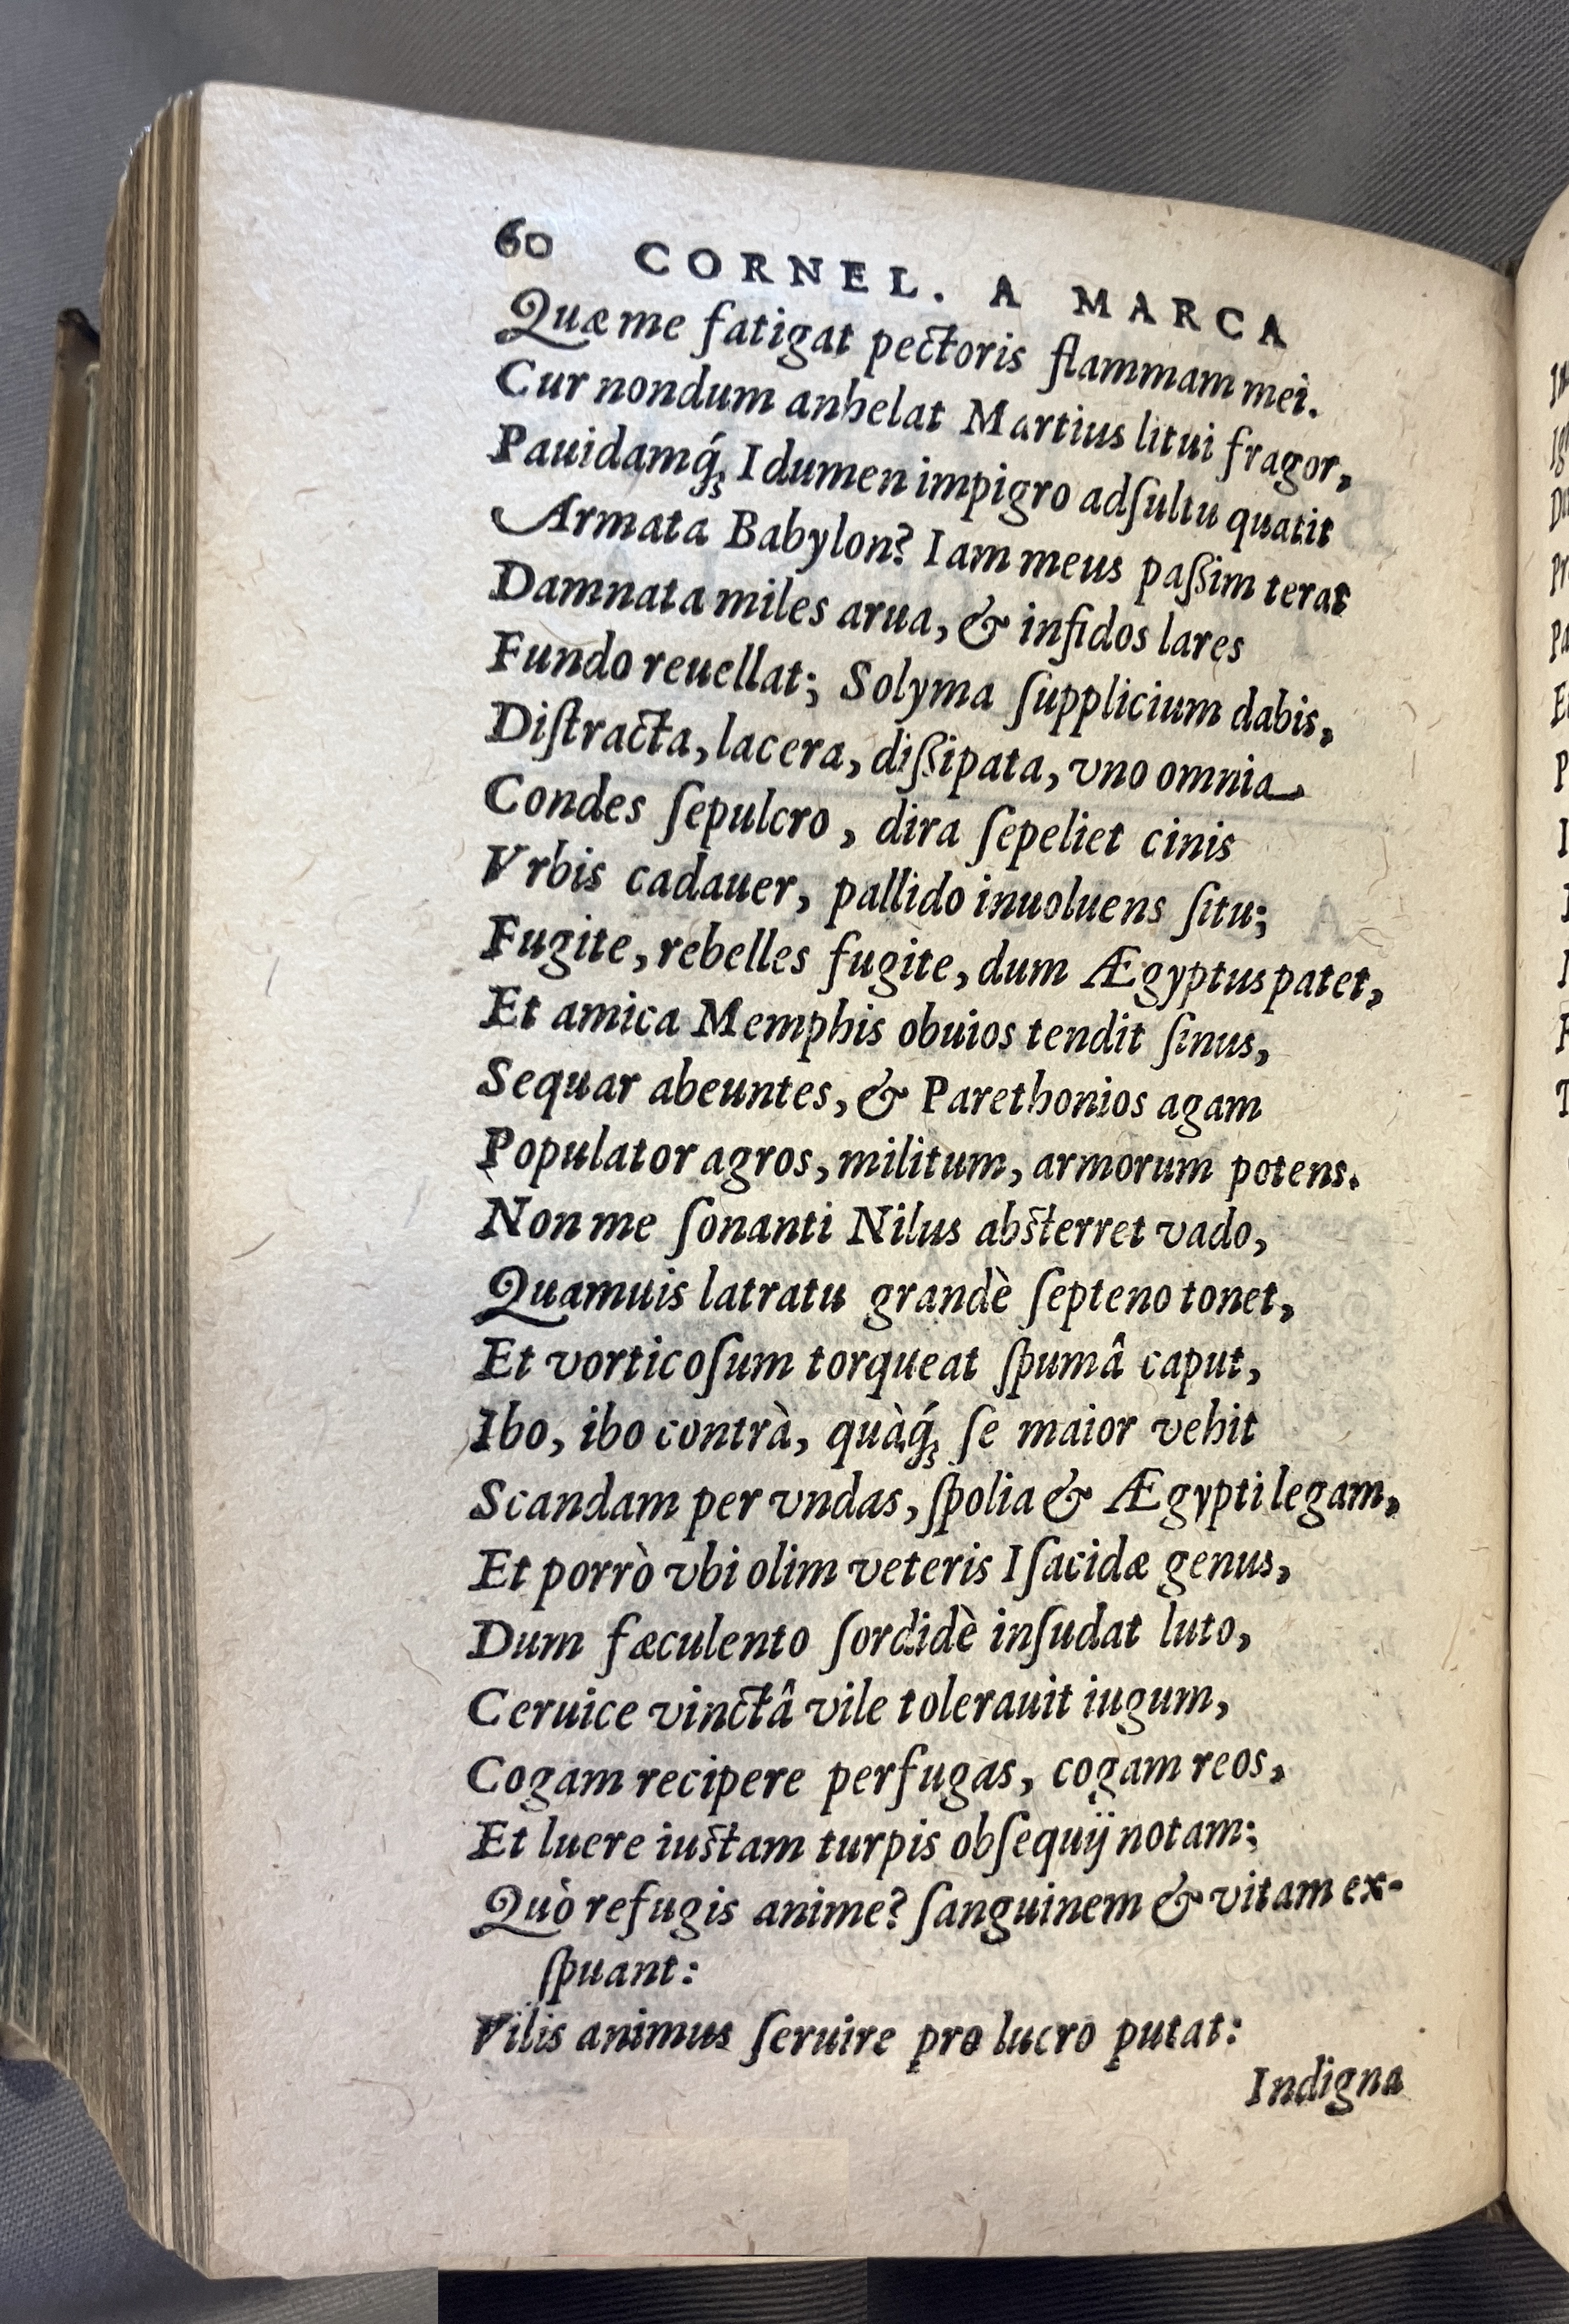 60 CORNEL. A MARCA
Quæ me fatigat pectoris flammam mei.
Cur nondum anhelat Martius litui fragor,
Pauidamq́; Idumen impigro adſultu quatit
Armata Babylon? Iam meus paſſim terat
Damnata miles arua, & infidos lares
Fundo reuellat; Solyma ſupplicium dabis,
Diſtracta, lacera, diſſipata, vno omnia
Condes ſepulcro, dira ſepeliet cinis
Vrbis cadauer, pallido inuoluens ſitu;
Fugite, rebelles fugite, dum Ægyptus patet,
Et amica Memphis obuios tendit ſinus,
Sequar abeuntes, & Parethonios agam
Populator agros, militum, armorum potens.
Non me ſonanti Nilus abſterret vado,
Quamuis latratu grandè ſepteno tonet,
Et vorticoſum torqueat ſpumâ caput,
Ibo, ibo contrà, quàq́; ſe maior vehit
Scandam per vndas, ſpolia & Ægypti legam,
Et porrò vbi olim veteris Iſacidæ genus,
Dum fæculento ſordidè inſudat luto,
Ceruice vinctâ vile tolerauit iugum,
Cogam recipere perfugas, cogam reos,
Et luere iuſtam turpis obſequij notam:
Quò refugis anime? ſanguinem & vitam ex-
ſpuant:
Vilis animus ſeruire pro lucro putat:
Indigna